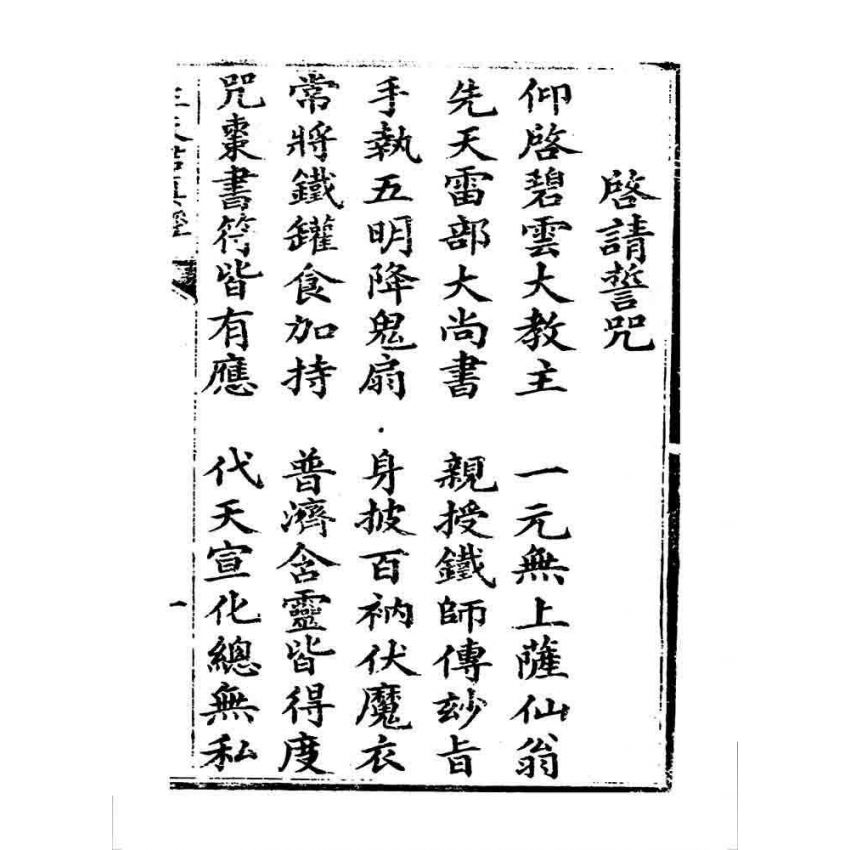 啓請誓咒
仰啓碧雲大教主 一元無上薩仙翁
先天雷部大尚書 親授鐵師傳玅旨
手執五明降鬼扇 身披百衲伏魔衣
常將鐵罐食加持 普濟含靈皆得度
咒棗書符皆有應 代天宣化總無私
一